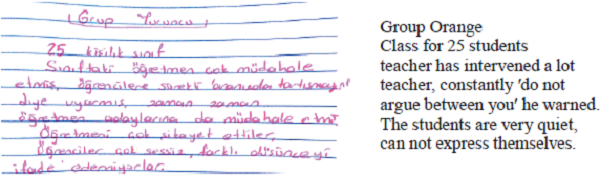 (Grup Turuncu)
25 kişilik sınıf
Sınıftaki öğretmen çok müdahale
etmiş, öğrencilere sürekli 'aranızda tartışmayın'
diye uyarmış, zaman zaman
öğretmen adaylarına da müdahale etmiş
Öğretmeni çok şikayet ettiler.
Öğrenciler çok sessiz, farklı düşünceyi
ifade edemiyorlar.
Group Orange
Class for 25 students
teacher has intervened a lot
teacher, constantly 'do not
argue between you' he warned.
The students are very quiet,
can not express themselves.